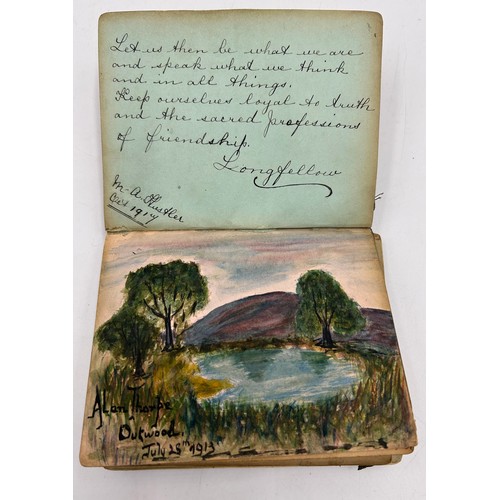 Let us then be what we are
and speak what we think
and in all things.
Keep ourselves loyal to truth
and the sacred professions
of friendship.
Longfellow
M. A.
Oct 1917
Alan Thorpe
Outwood
July 29th 1913